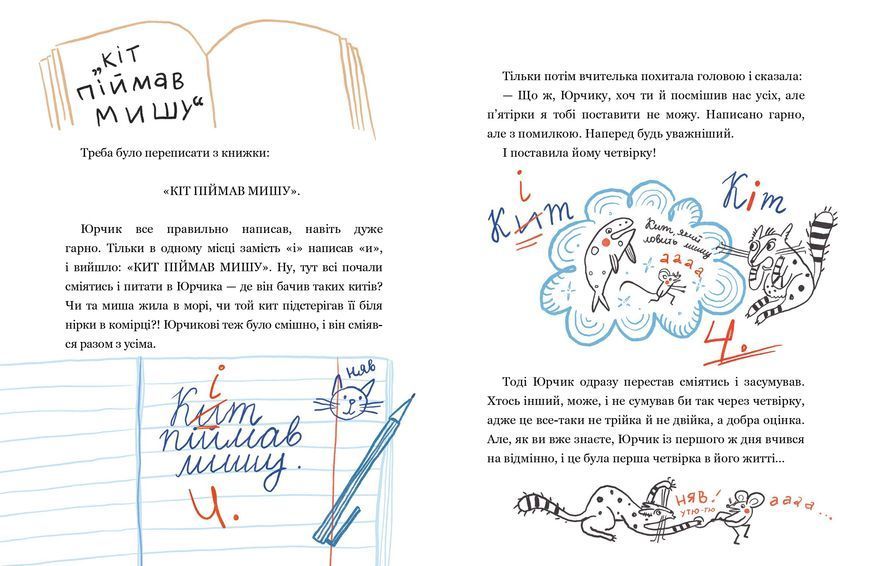 „кіт
піймав
мишу“
Треба було переписати з книжки:
«КІТ ПІЙМАВ МИШУ».
Юрчик все правильно написав, навіть дуже
гарно. Тільки в одному місці замість «і» написав «и»,
і вийшло: «КИТ ПІЙМАВ МИШУ». Ну, тут всі почали
сміятись і питати в Юрчика — де він бачив таких китів?
Чи та миша жила в морі, чи той кит підстерігав її біля
нірки в комірці?! Юрчикові теж було смішно, і він сміяв-
ся разом з усіма.
няв
і
Кит
піймав
мишу.
4.
Тільки потім вчителька похитала головою і сказала:
— Що ж, Юрчику, хоч ти й посмішив нас усіх, але
п’ятірки я тобі поставити не можу. Написано гарно,
але з помилкою. Наперед будь уважніший.
І поставила йому четвірку!
і
Кит
Кит, який
ловить мишу
аааа
Кіт
4.
Тоді Юрчик одразу перестав сміятись і засумував.
Хтось інший, може, і не сумував би так через четвірку,
адже це все-таки не трійка й не двійка, а добра оцінка.
Але, як ви вже знаєте, Юрчик із першого ж дня вчився
на відмінно, і це була перша четвірка в його житті...
НЯВ!
УТЮ-ТЮ
аааа...